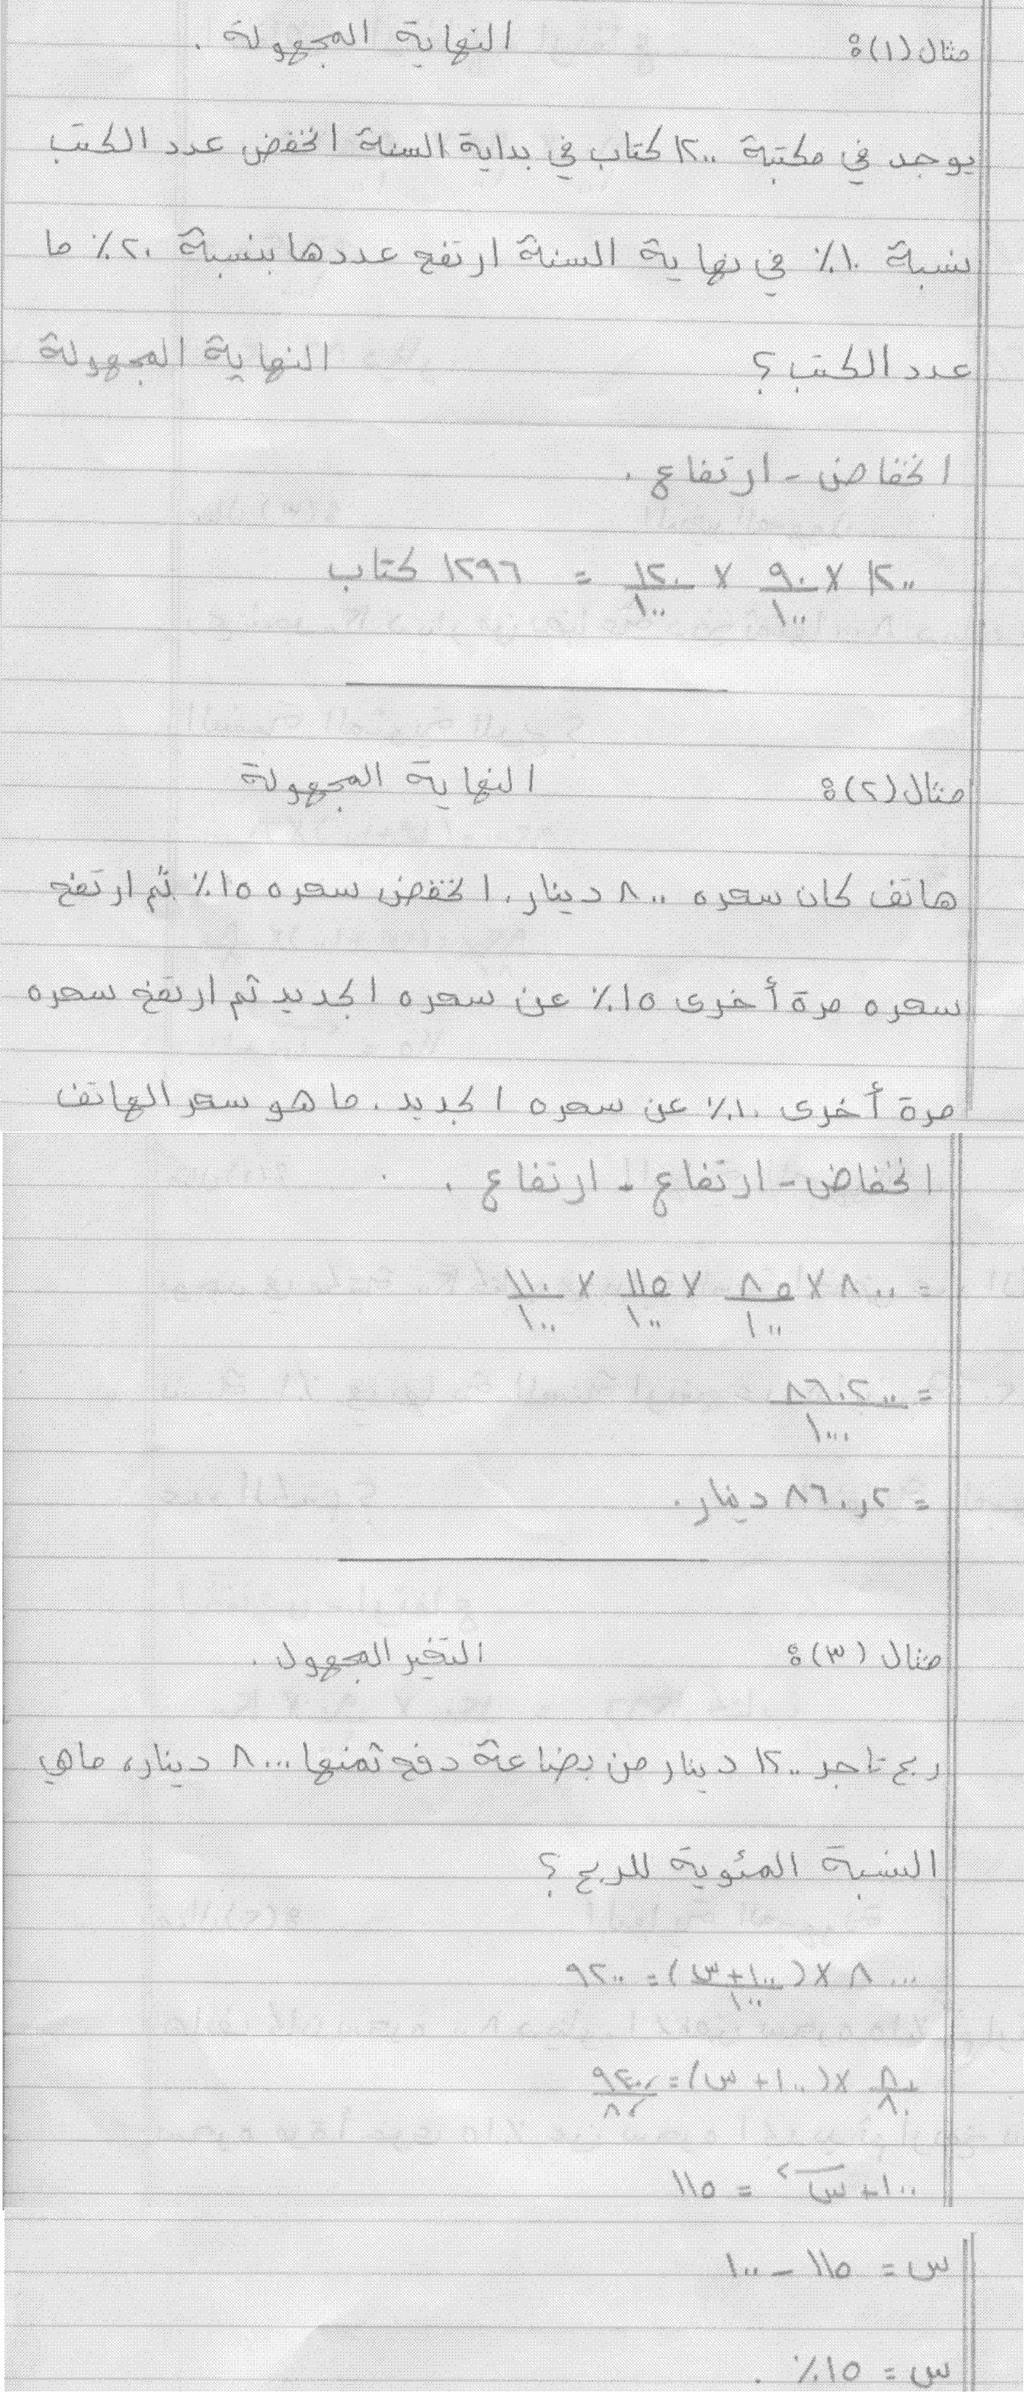 مثال (١): النهاية المجهولة.
يوجد في مكتبة ١٢٠٠ كتاب في بداية السنة انخفض عدد الكتب
بنسبة ١٠٪ في نهاية السنة ارتفع عددها بنسبة ٢٠٪ ما
عدد الكتب؟ النهاية المجهولة
انخفاض - ارتفاع.
١٢٠٠ × ٩٠/١٠٠ × ١٢٠/١٠٠ = ١٢٩٦ كتاب
مثال (٢): النهاية المجهولة
هاتف كان سعره ٨٠٠ دينار. انخفض سعره ١٥٪ ثم ارتفع
سعره مرة أخرى ١٥٪ عن سعره الجديد ثم ارتفع سعره
مرة أخرى ١٠٪ عن سعره الجديد. ما هو سعر الهاتف
انخفاض - ارتفاع - ارتفاع.
= ٨٠٠ × ٨٥/١٠٠ × ١١٥/١٠٠ × ١١٠/١٠٠
= ٨٦٠٢٠٠/١٠٠٠
= ٨٦٠,٢ دينار.
مثال (٣): التغير المجهول.
ربح تاجر ١٢٠٠ دينار من بضاعة دفع ثمنها ٨٠٠٠ دينار، ما هي
النسبة المئوية للربح؟
٨٠٠٠ × (١٠٠+س/١٠٠) = ٩٢٠٠
٨٠/٨٠ × (١٠٠ + س) = ٩٢٠٠/٨٠
١٠٠ + س = ١١٥
س = ١١٥ - ١٠٠
س = ١٥٪.